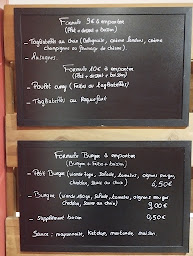 Formule 9€ à emporter
(Plat + dessert + boisson)
- Tagliatelles au choix (Bolognaise, crème lardons, crème
champignons ou fromage de chèvre)
- Lasagnes.
Formule 10€ à emporter
(Plat + dessert + boisson)
- Poulet curry (frites ou tagliatelles)
- Tagliatelles au Roquefort
Formule Burger à emporter
(Burger + frites + boisson)
- Petit Burger (viande 90g, salade, tomates, oignons rouges,
cheddar, sauce au choix) 6,50€
- Burger (viande 180g, salade, tomates, oignons rouges,
cheddar, sauce au choix) 9,00€
- Supplément bacon 0,50€
Sauce : mayonnaise, Ketchup, moutarde, maison.